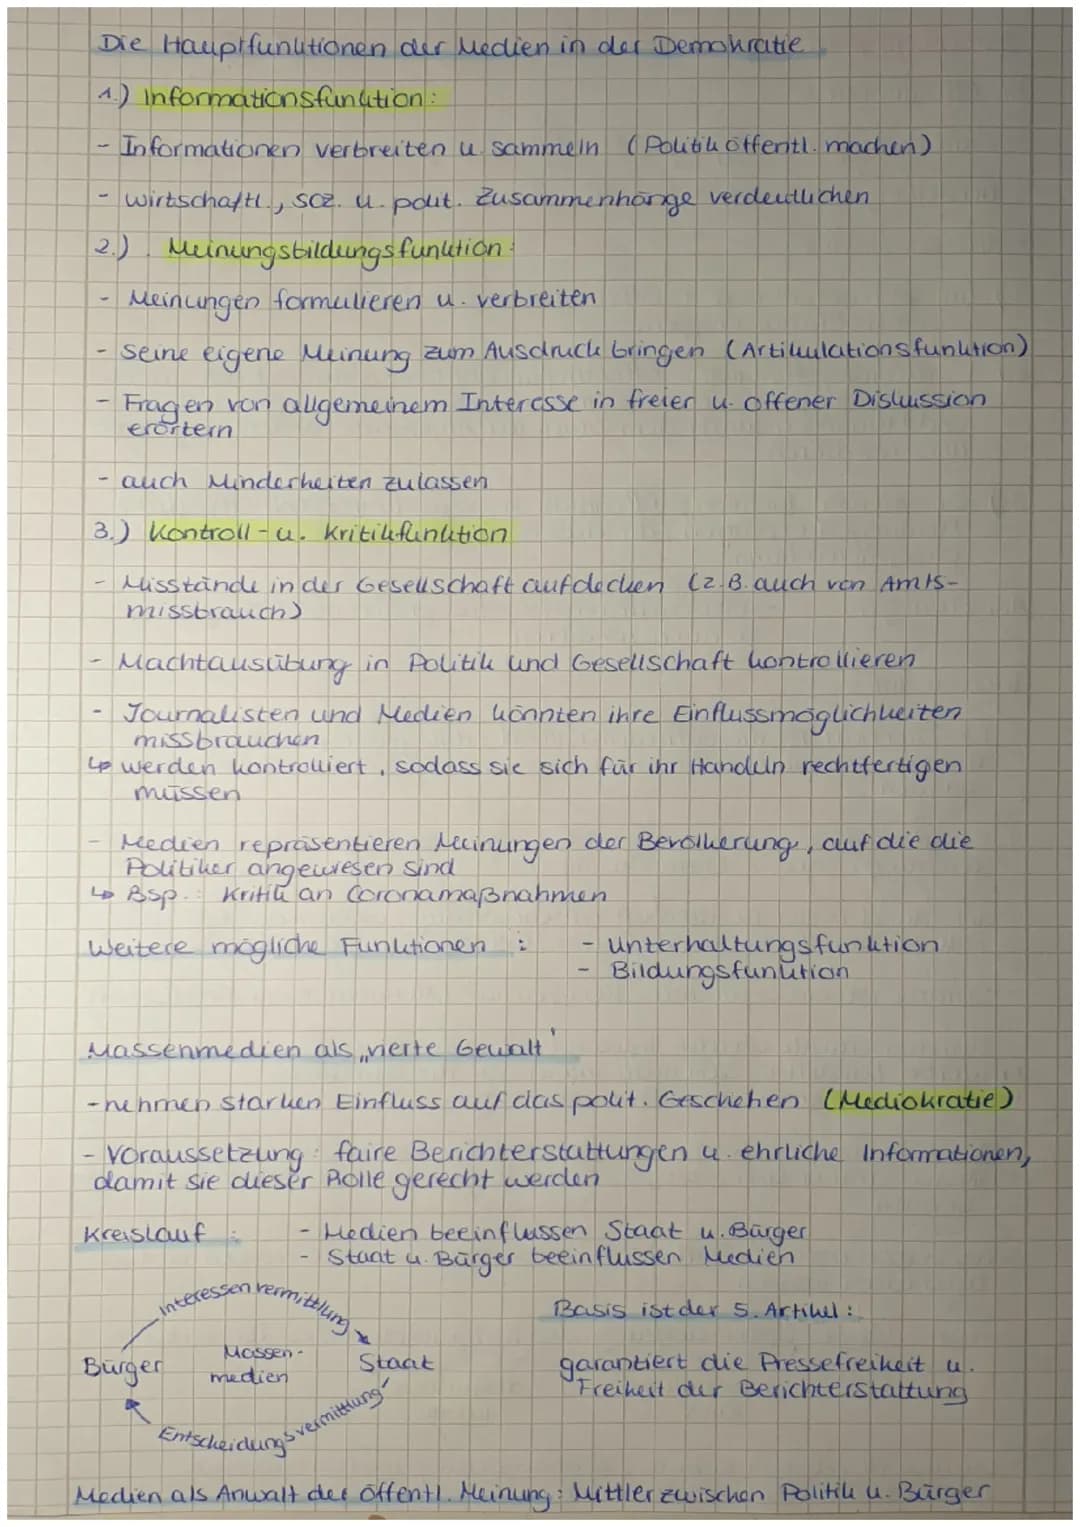 Die Hauptfunktionen der Medien in der Demokratie
1.) Informationsfunktion:
- Informationen verbreiten u. sammeln (Politik öffentl. machen)
- wirtschaftl., soz. u. polit. Zusammenhänge verdeutlichen
2.) Meinungsbildungsfunktion:
- Meinungen formulieren u. verbreiten
- seine eigene Meinung zum Ausdruck bringen (Artikulationsfunktion)
- Fragen von allgemeinem Interesse in freier u. offener Diskussion
erörtern
- auch Minderheiten zulassen
3.) Kontroll- u. Kritikfunktion
- Misstände in der Gesellschaft aufdecken (z.B. auch von Amts-
missbrauch)
- Machtausübung in Politik und Gesellschaft kontrollieren
- Journalisten und Medien könnten ihre Einflussmöglichkeiten
missbrauchen
↳ werden kontrolliert, sodass sie sich für ihr Handeln rechtfertigen
müssen
- Medien repräsentieren Meinungen der Bevölkerung, auf die die
Politiker angewiesen sind
↳ Bsp.: Kritik an Coronamaßnahmen
Weitere mögliche Funktionen : - Unterhaltungsfunktion
- Bildungsfunktion
Massenmedien als „vierte Gewalt"
- nehmen starken Einfluss auf das polit. Geschehen (Mediokratie)
- Voraussetzung: faire Berichterstattungen u. ehrliche Informationen,
damit sie dieser Rolle gerecht werden
Kreislauf : - Medien beeinflussen Staat u. Bürger
- Staat u. Bürger beeinflussen Medien
Interessenvermittlung
Bürger
Massen-
medien
Staat
Entscheidungsvermittlung
Basis ist der 5. Artikel:
garantiert die Pressefreiheit u.
Freiheit der Berichterstattung
Medien als Anwalt der öffentl. Meinung: Mittler zwischen Politik u. Bürger